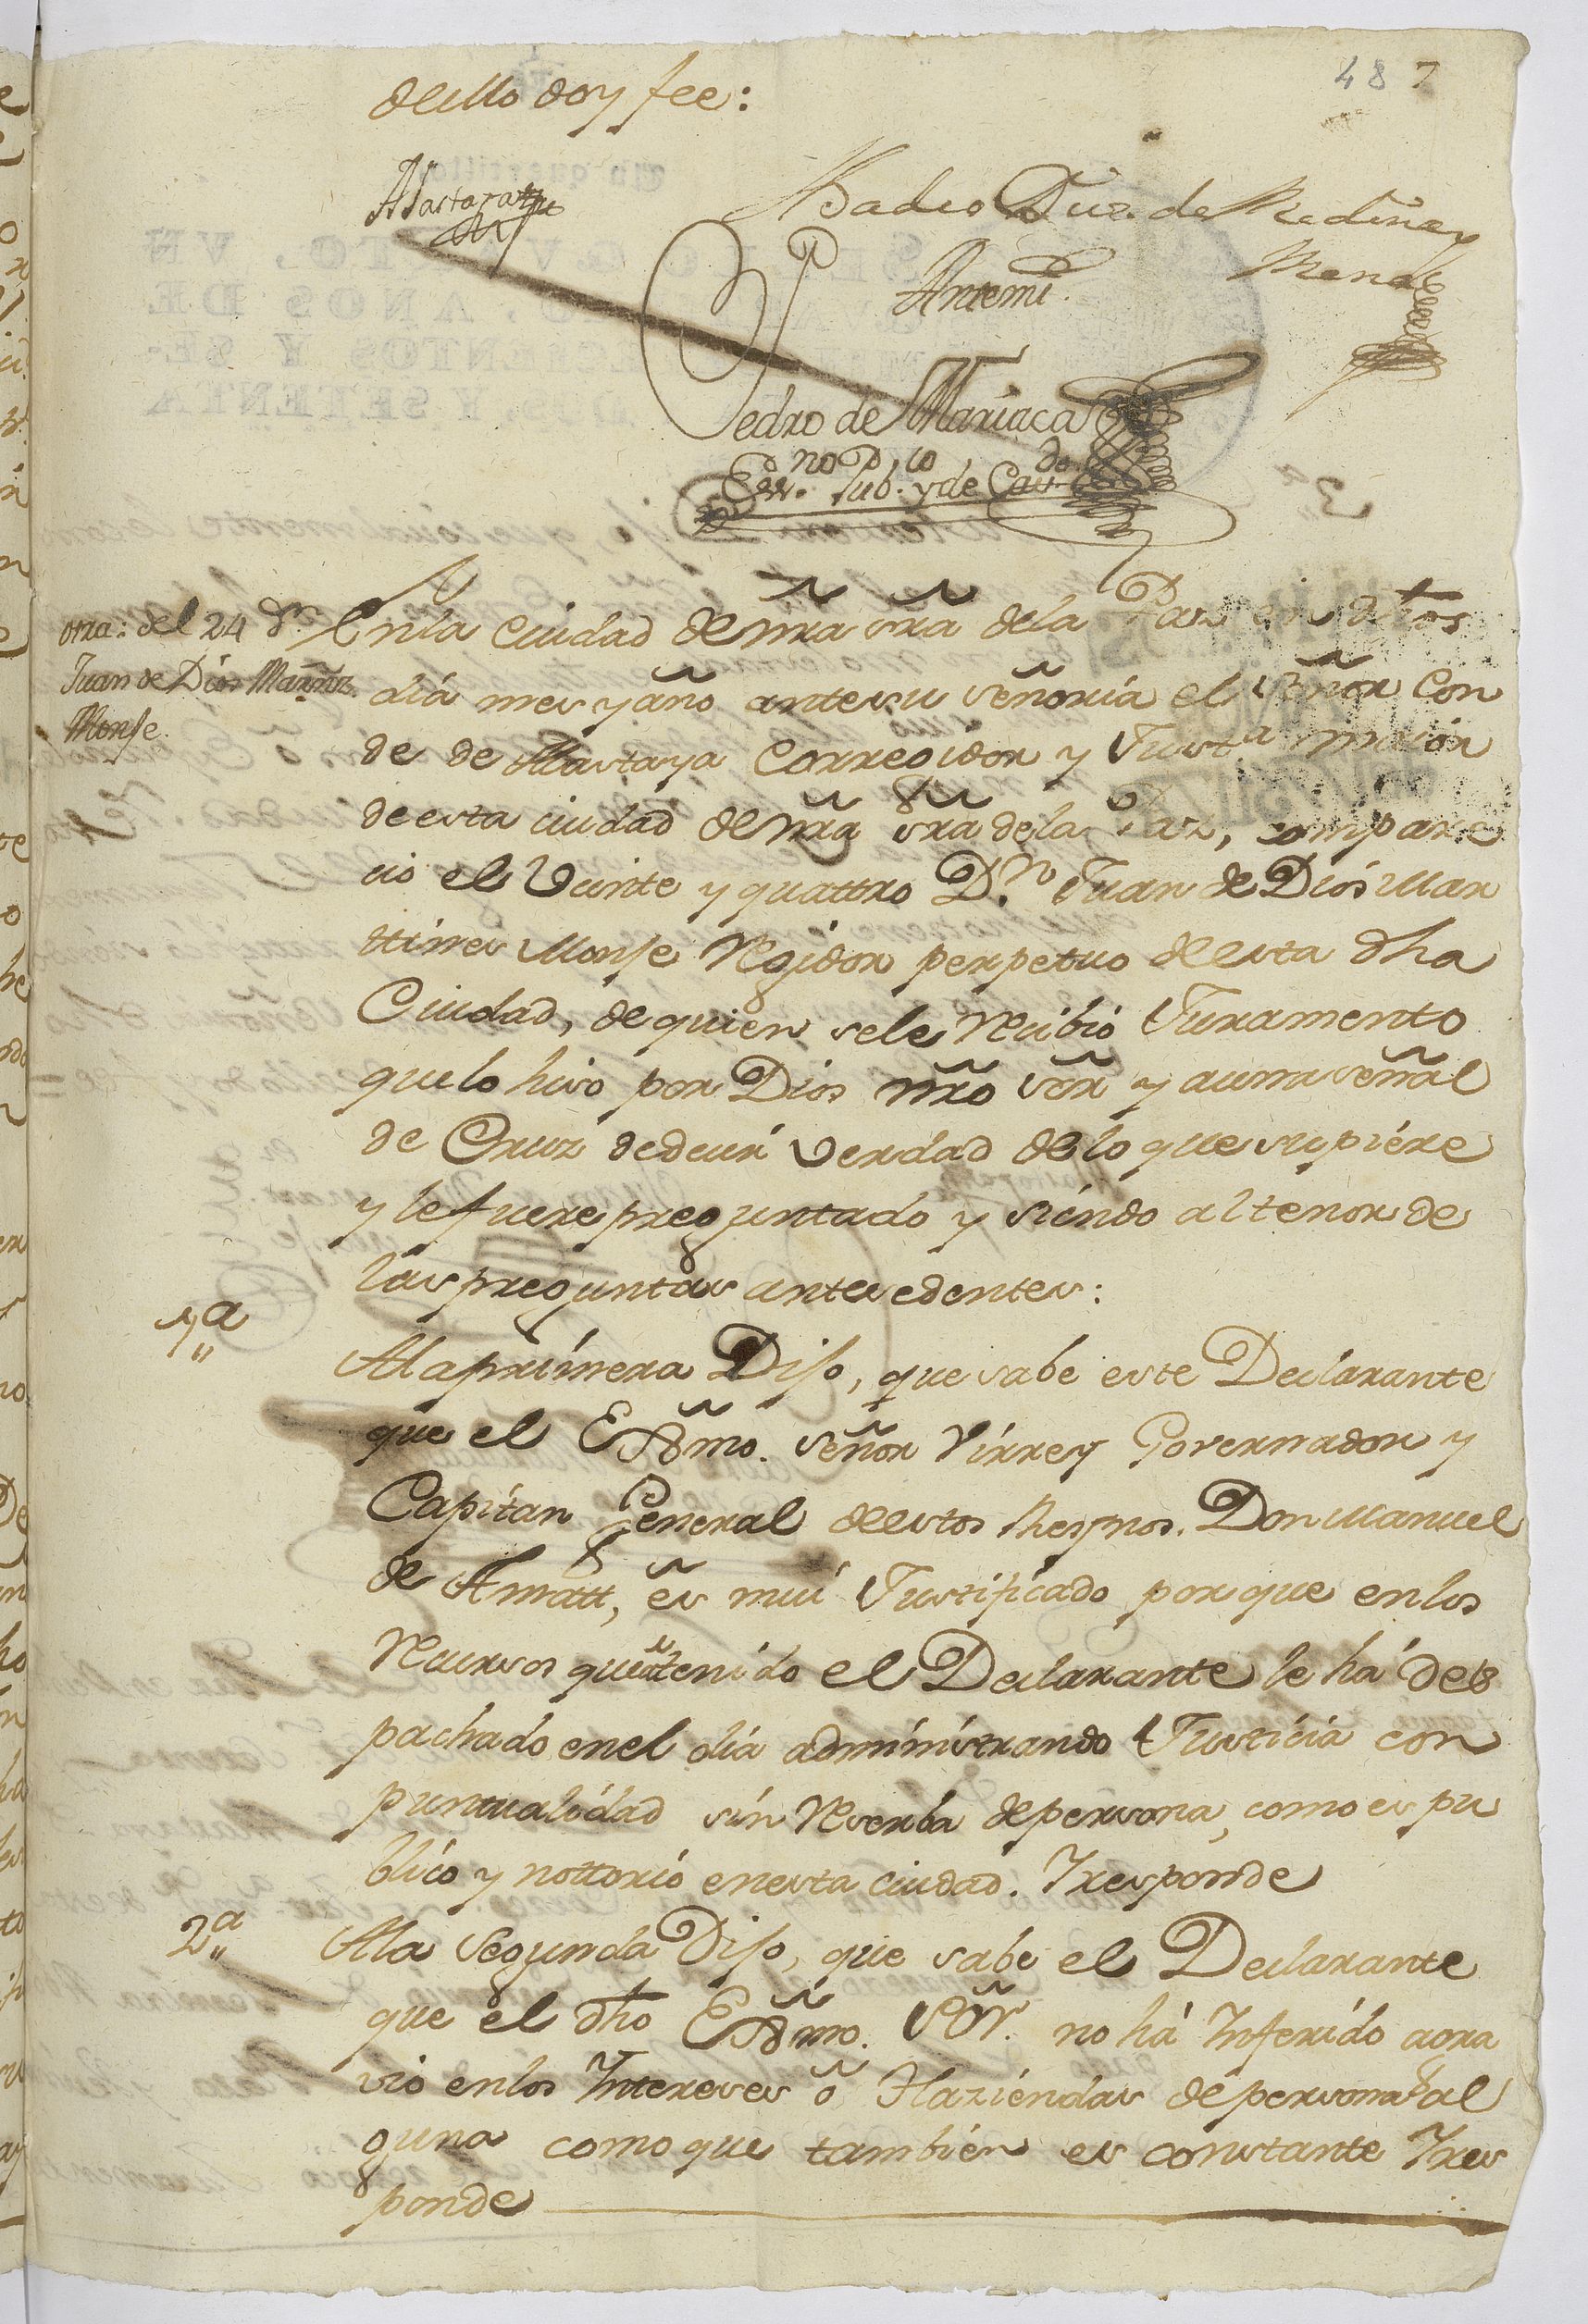 487
dello doy fee:
Thadeo Diez de Medina y
Mena
Antemi.
Pedro de Mariaca
Essno. Pubco. y de Cavdo
otra: del 24 Dn.
Juan de Dios Marñnz.
Monje.
En la Ciudad de nra sra de la Paz en dhos
dia mes y año ante su señoria el Señor Con
de de Mastaya Corregidor y Justa. maior
de esta ciudad de nra Sra de la Paz, compare
cio el Veinte y quattro Dn. Juan de Dios Mar
ttines Monje Regidor perpetuo de esta dha
Ciudad, de quien se le Recibió Juramento
que lo hiso por Dios nro sor y a una señal
de Cruz de decir Verdad de lo que supiére
y le fuere preguntado y siendo al tenor de
las preguntas antesedentes:
1a
A la primera Dijo, que sabe este Declarante
que el Exmo. Señor Virrey Governador y
Capitan General de estos Reynos. Don Manuel
de Amatt, es mui Justificado porque en los
Recursos que a tenido el Declarante le há des
pachado en el dia administrando Justicia con
puntualidad sin Reserba de persona, como es pu
blico y nottorio en esta ciudad. Y responde
2a
A la Segunda Dijo, que sabe el Declarante
que el dho Exmo. Sor. no há Inferido agra
vio en los Intereses ó Haziendas de persona al
guna como que tambien es constante Y res
ponde